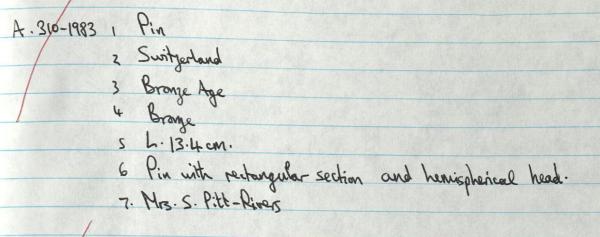 A.310-1983 1 Pin
2 Switzerland
3 Bronze Age
4 Bronze
5 L. 13.4cm.
6 Pin with rectangular section and hemispherical head.
7. Mrs. S. Pitt-Rivers